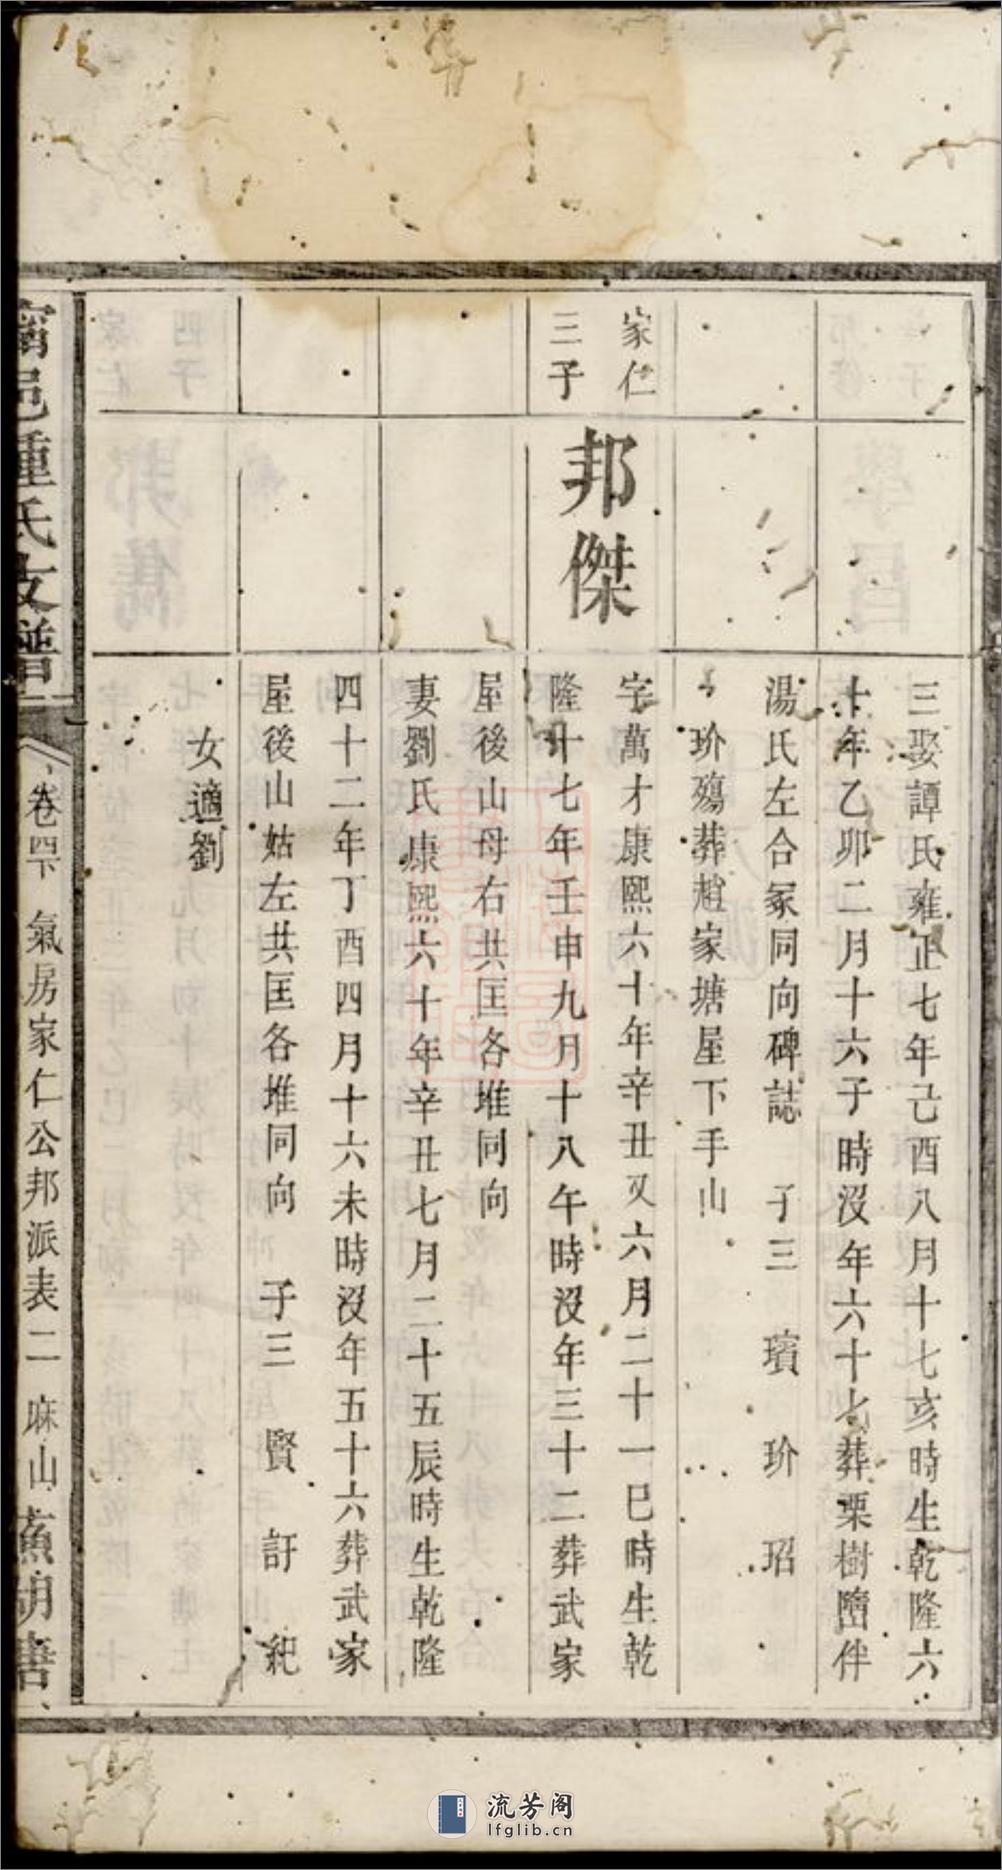 三娶譚氏雍正七年己酉八月十七亥時生乾隆六
十年乙卯二月十六子時沒年六十七葬栗樹㙐伴
湯氏左合冢同向碑誌 子三 璸 玠 玿
玠殤葬趙家塘屋下手山
家仁
三子
邦傑
字萬才康熙六十年辛丑又六月二十一巳時生乾
隆十七年壬申九月十八午時沒年三十二葬武家
屋後山母右共匡各堆同向
妻劉氏康熙六十年辛丑七月二十五辰時生乾隆
四十二年丁酉四月十六未時沒年五十六葬武家
屋後山姑左共匡各堆同向 子三 賢 訏 紀
女適劉
邑鍾氏支譜
卷四下 氣房家仁公邦派表二 麻山
流芳阁
lfglib.cn